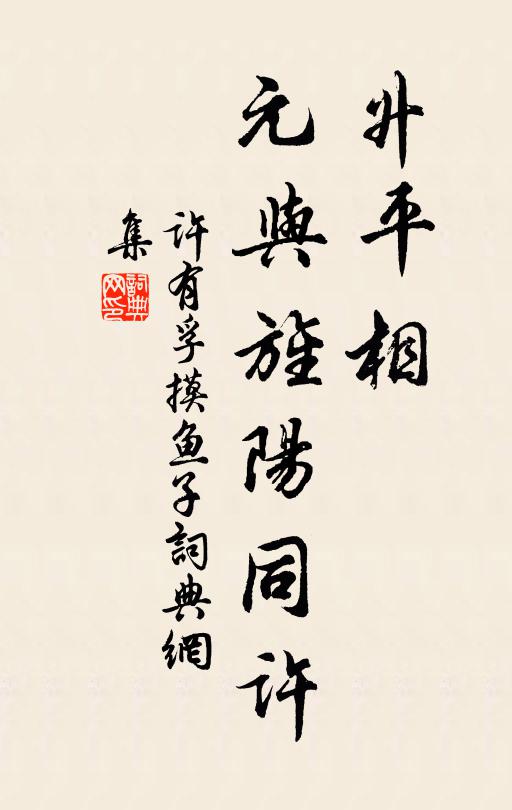 升平相
元與旌陽同許
許有孚摸鱼子詞典網
集
詞典
网印